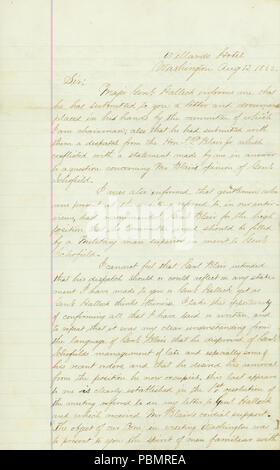 Willards Hotel
Washington Aug 13 1862.
Sir:
Major Genl Halleck informs me that
he has submitted to you a letter and document
placed in his hands by the committee of which
I am chairman; also that he had submitted with
them a dispatch from the Hon. F P Blair Jr which
conflicted with a statement made by me in answer
to a question concerning Mr Blair's opinion of Genl
Schofield.
I was also informed that gentlemen who
are to in our inter-
view, had Genl Blair for the high
position that should be filled
by a Military man superior in merit to Genl
Schofield.
I cannot feel that Genl Blair intended
that his dispatch should or could reflect on any state-
ment I have made to you or Genl Halleck yet as
Genl Halleck thinks otherwise I take this opportunity
of confirming all that I have said or written, and
to repeat that it was my clear understanding from
the language of Genl Blair that he disproved of Genl
Schofields management of late and especially some of
his recent orders and that he desired his removal
from the position he now occupies, this last appears
to me is clearly established by the 1st resolution of
the meeting referred to in my letter to Genl Halleck
and which received Mr Blairs cordial support.
The object of our Com. in visiting Washington was
to present to you the views of men familiar with
alamy
PBMREA